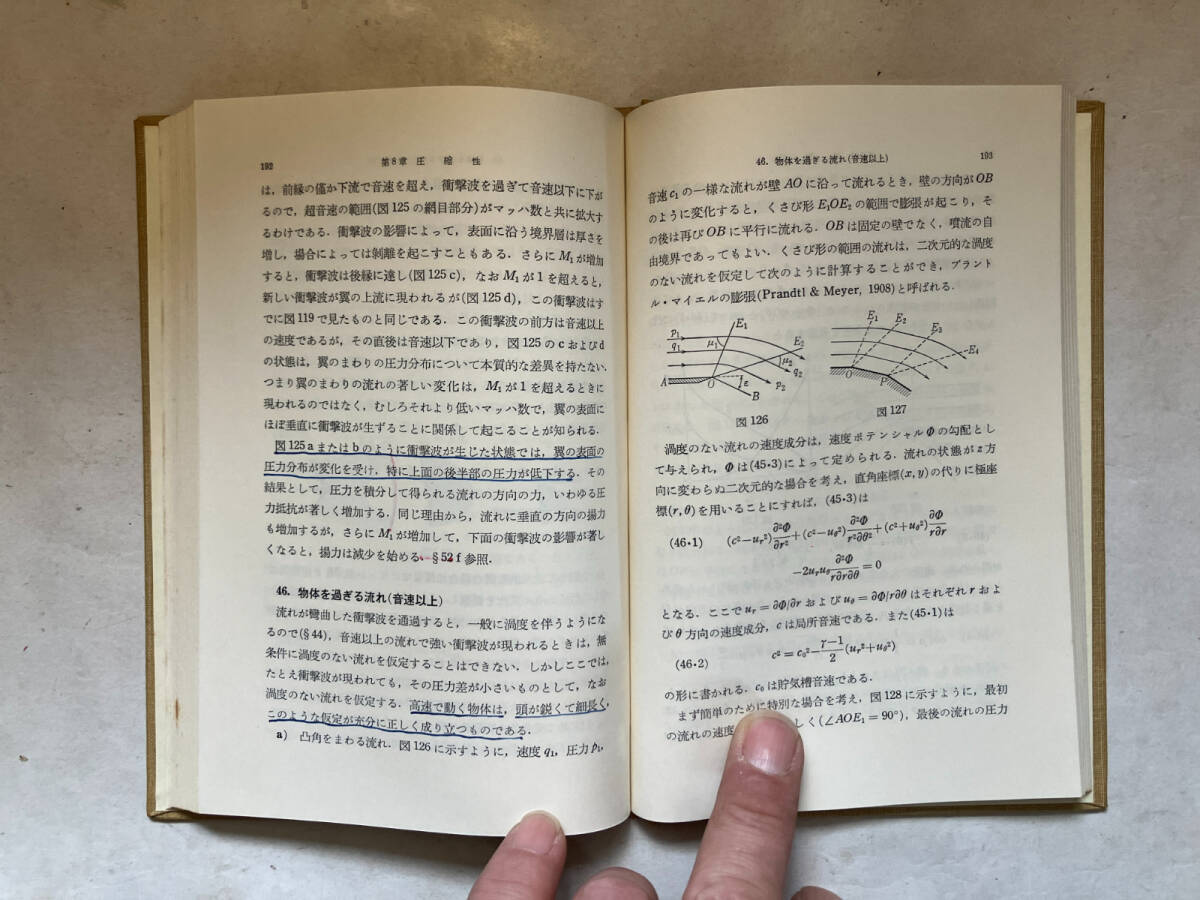 192
第8章 圧縮性
は，前縁の僅か下流で音速を超え，衝撃波を過ぎて音速以下に下が
るので，超音速の範囲(図125の網目部分)がマッハ数と共に拡大す
るわけである．衝撃波の影響によって，表面に沿う境界層は厚さを
増し，場合によっては剝離を起こすこともある．さらにM₁が増加
すると，衝撃波は後縁に達し(図125c)，なおM₁が1を超えると，
新しい衝撃波が翼の上流に現われるが(図125d)，この衝撃波はす
でに図119で見たものと同じである．この衝撃波の前方は音速以上
の速度であるが，その直後は音速以下であり，図125のcおよびd
の状態は，翼のまわりの圧力分布について本質的な差異を持たない．
つまり翼のまわりの流れの著しい変化は，M₁が1を超えるときに
現われるのではなく，むしろそれより低いマッハ数で，翼の表面に
ほぼ垂直に衝撃波が生ずることに関係して起こることが知られる．
図125aまたはbのように衝撃波が生じた状態では，翼の表面の
圧力分布が変化を受け，特に上面の後半部の圧力が低下する．その
結果として，圧力を積分して得られる流れの方向の力，いわゆる圧
力抵抗が著しく増加する．同じ理由から，流れに垂直の方向の揚力
も増加するが，さらにM₁が増加して，下面の衝撃波の影響が著し
くなると，揚力は減少を始める．§52f参照．
46. 物体を過ぎる流れ(音速以上)
流れが彎曲した衝撃波を通過すると，一般に渦度を伴うようにな
るので(§44)，音速以上の流れで強い衝撃波が現われるときは，無
条件に渦度のない流れを仮定することはできない．しかしここでは，
たとえ衝撃波が現われても，その圧力差が小さいものとして，なお
渦度のない流れを仮定する．高速で動く物体は，頭が鋭くて細長く，
このような仮定が充分に正しく成り立つものである．
a) 凸角をまわる流れ．図126に示すように，速度q₁，圧力p₁，
46. 物体を過ぎる流れ(音速以上)
193
音速c₁の一様な流れが壁AOに沿って流れるとき，壁の方向がOB
のように変化すると，くさび形E₁OE₂の範囲で膨張が起こり，そ
の後は再びOBに平行に流れる．OBは固定の壁でなく，噴流の自
由境界であってもよい．くさび形の範囲の流れは，二次元的な渦度
のない流れを仮定して次のように計算することができ，プラント
ル・マイエルの膨張(Prandtl & Meyer, 1908)と呼ばれる．
p₁
q₁
μ₁
E₁
E₂
μ₂
q₂
p₂
A
O
ε
B
図126
E₁
E₂
E₃
E₄
O
P
図127
渦度のない流れの速度成分は，速度ポテンシャルΦの勾配とし
て与えられ，Φは(45·3)によって定められる．流れの状態がz方
向に変わらぬ二次元的な場合を考え，直角座標(x, y)の代りに極座
標(r, θ)を用いることにすれば，(45·3)は
(46·1) (c²−uᵣ²)∂²Φ/∂r²+(c²−u_θ²)∂²Φ/r²∂θ²+(c²+u_θ²)∂Φ/r∂r
−2uᵣu_θ ∂²Φ/r∂r∂θ=0
となる．ここでuᵣ=∂Φ/∂rおよびu_θ=∂Φ/r∂θはそれぞれrおよ
びθ方向の速度成分，cは局所音速である．また(45·1)は
(46·2) c²=c₀²−(γ−1)/2(uᵣ²+u_θ²)
の形に書かれる．c₀は貯気槽音速である．
まず簡単のために特別な場合を考え，図128に示すように，最初
の流れの速度 しく(∠AOE₁=90°)，最後の流れの圧力